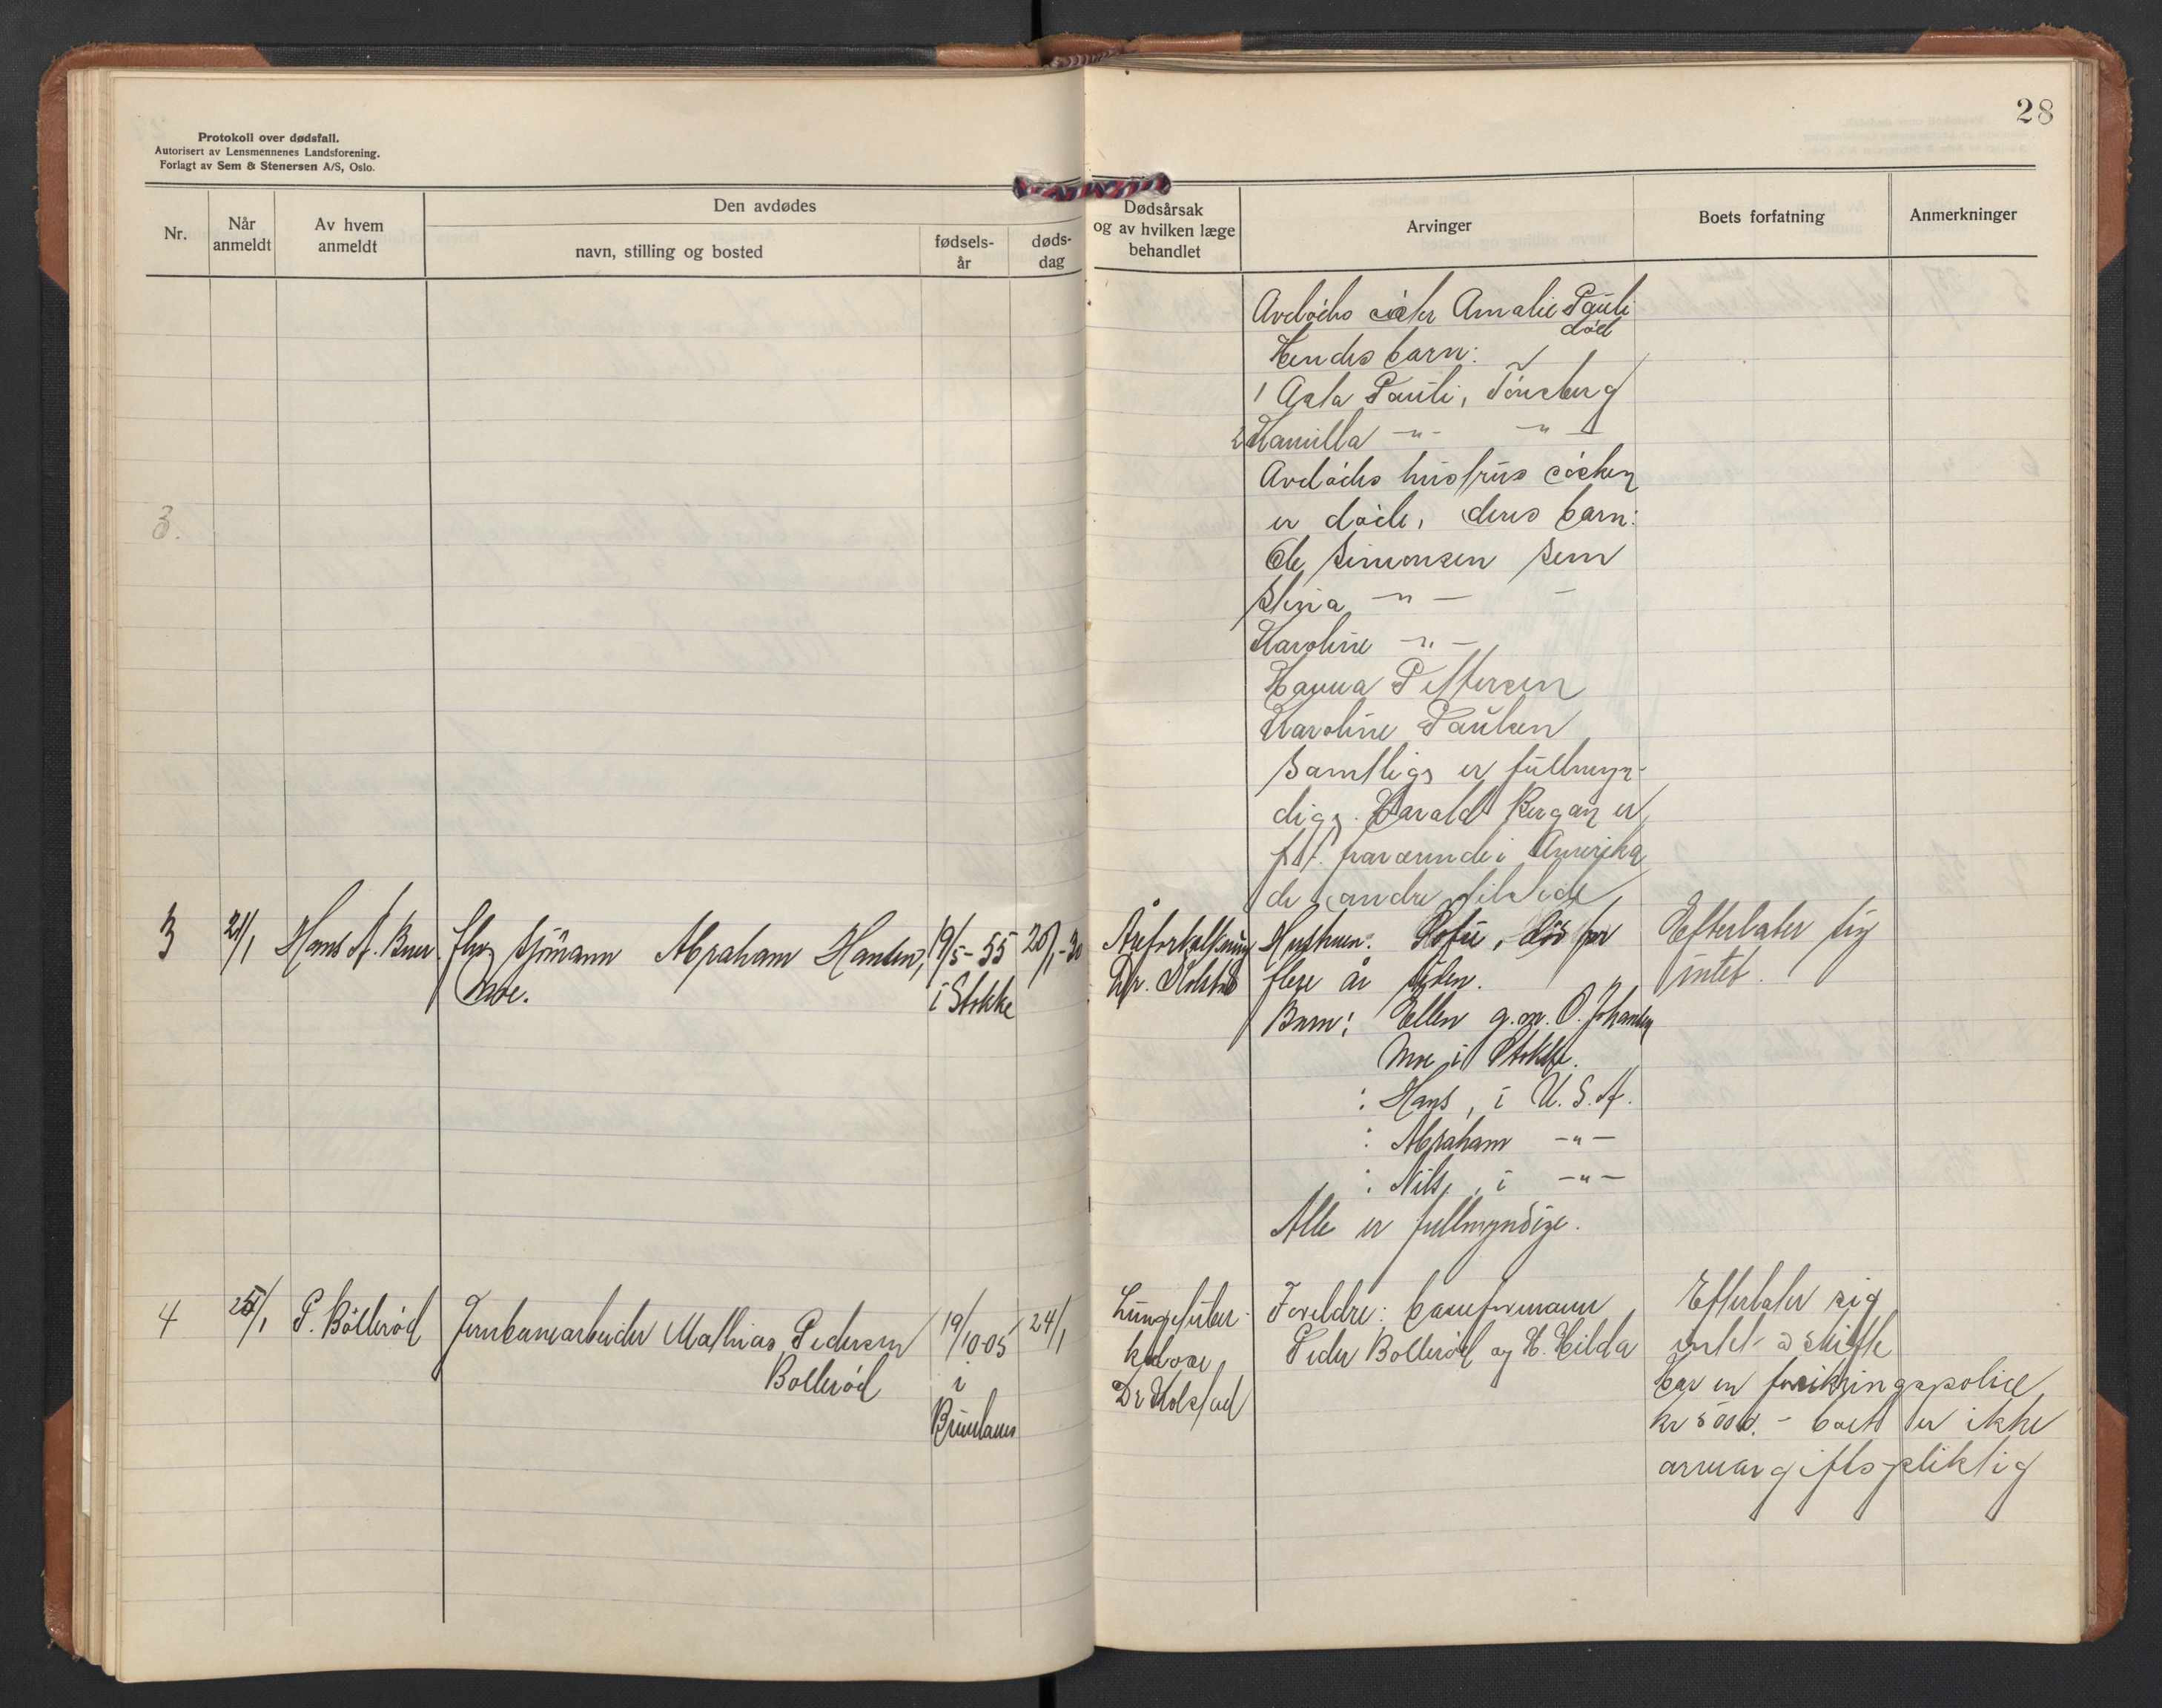 28
Protokoll over dødsfall.
Autorisert av Lensmennenes Landsforening.
Forlagt av Sem & Stenersen A/S, Oslo.
Nr.
Når anmeldt
Av hvem anmeldt
Den avdødes
navn, stilling og bosted
fødsels-år
døds-dag
Dødsårsak og av hvilken læge behandlet
Arvinger
Boets forfatning
Anmerkninger
Avdødes søster Amalie Pauli
død
Hendes barn:
1 Asta Pauli, Tønsberg
2 Kamilla -"- -"-
Avdødes hustrus søsken
er døde, deres barn:
Ole Simonsen Sem
Stina -"- -
Karoline -"-
Hanna Pettersen
Karoline Paulsen
Samtlige er fullmyn-
dige. Harald Bergan er
f.t. fraværende i Amerika
de andre tilstede
3.
3 21/1 Hans A. Buer fhv sjömann Abraham Hansen, 19/5-55 20/1-30
Moe. i Stokke
Åreforkalkning
Dr. Kolstad
Hustruen: Sofie, död for
flere år siden.
Barn: Ellen g.m. O. Johansen
Moe i Stokke.
: Hans, i U.S.A.
: Abraham -"-
: Nils, i -"-
Alle er fullmyndige.
Efterlater sig
intet.
4 25/1 P. Böllerød Jernbanearbeider Mathias Pedersen 19/10-05 24/1
Bollerød i
Brunlanes
Lungetuber-
kulose
Dr Kolstad
Foreldre: baneformann
Peder Bollerød og H. Hilda
Efterlater sig
intet å skifte
har en forsikringspolice
kr 5000.- boet er ikke
arveavgiftspliktig